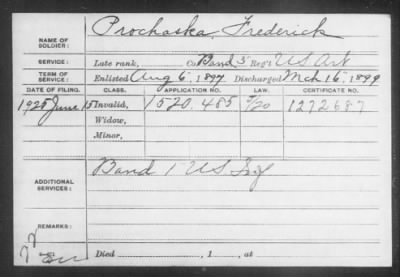 NAME OF SOLDIER: Prochaska, Frederick
SERVICE: Late rank, Co. Band 5" Reg't U.S. Art
TERM OF SERVICE: Enlisted Aug 6", 1897 Discharged Mch 16", 1899
DATE OF FILING. CLASS. APPLICATION NO. LAW. CERTIFICATE NO.
1925 June 15 Invalid, 1520,485 1272687
Widow,
Minor,
ADDITIONAL SERVICES: Band 1" U.S. Inf
REMARKS:
Died , 1 , at